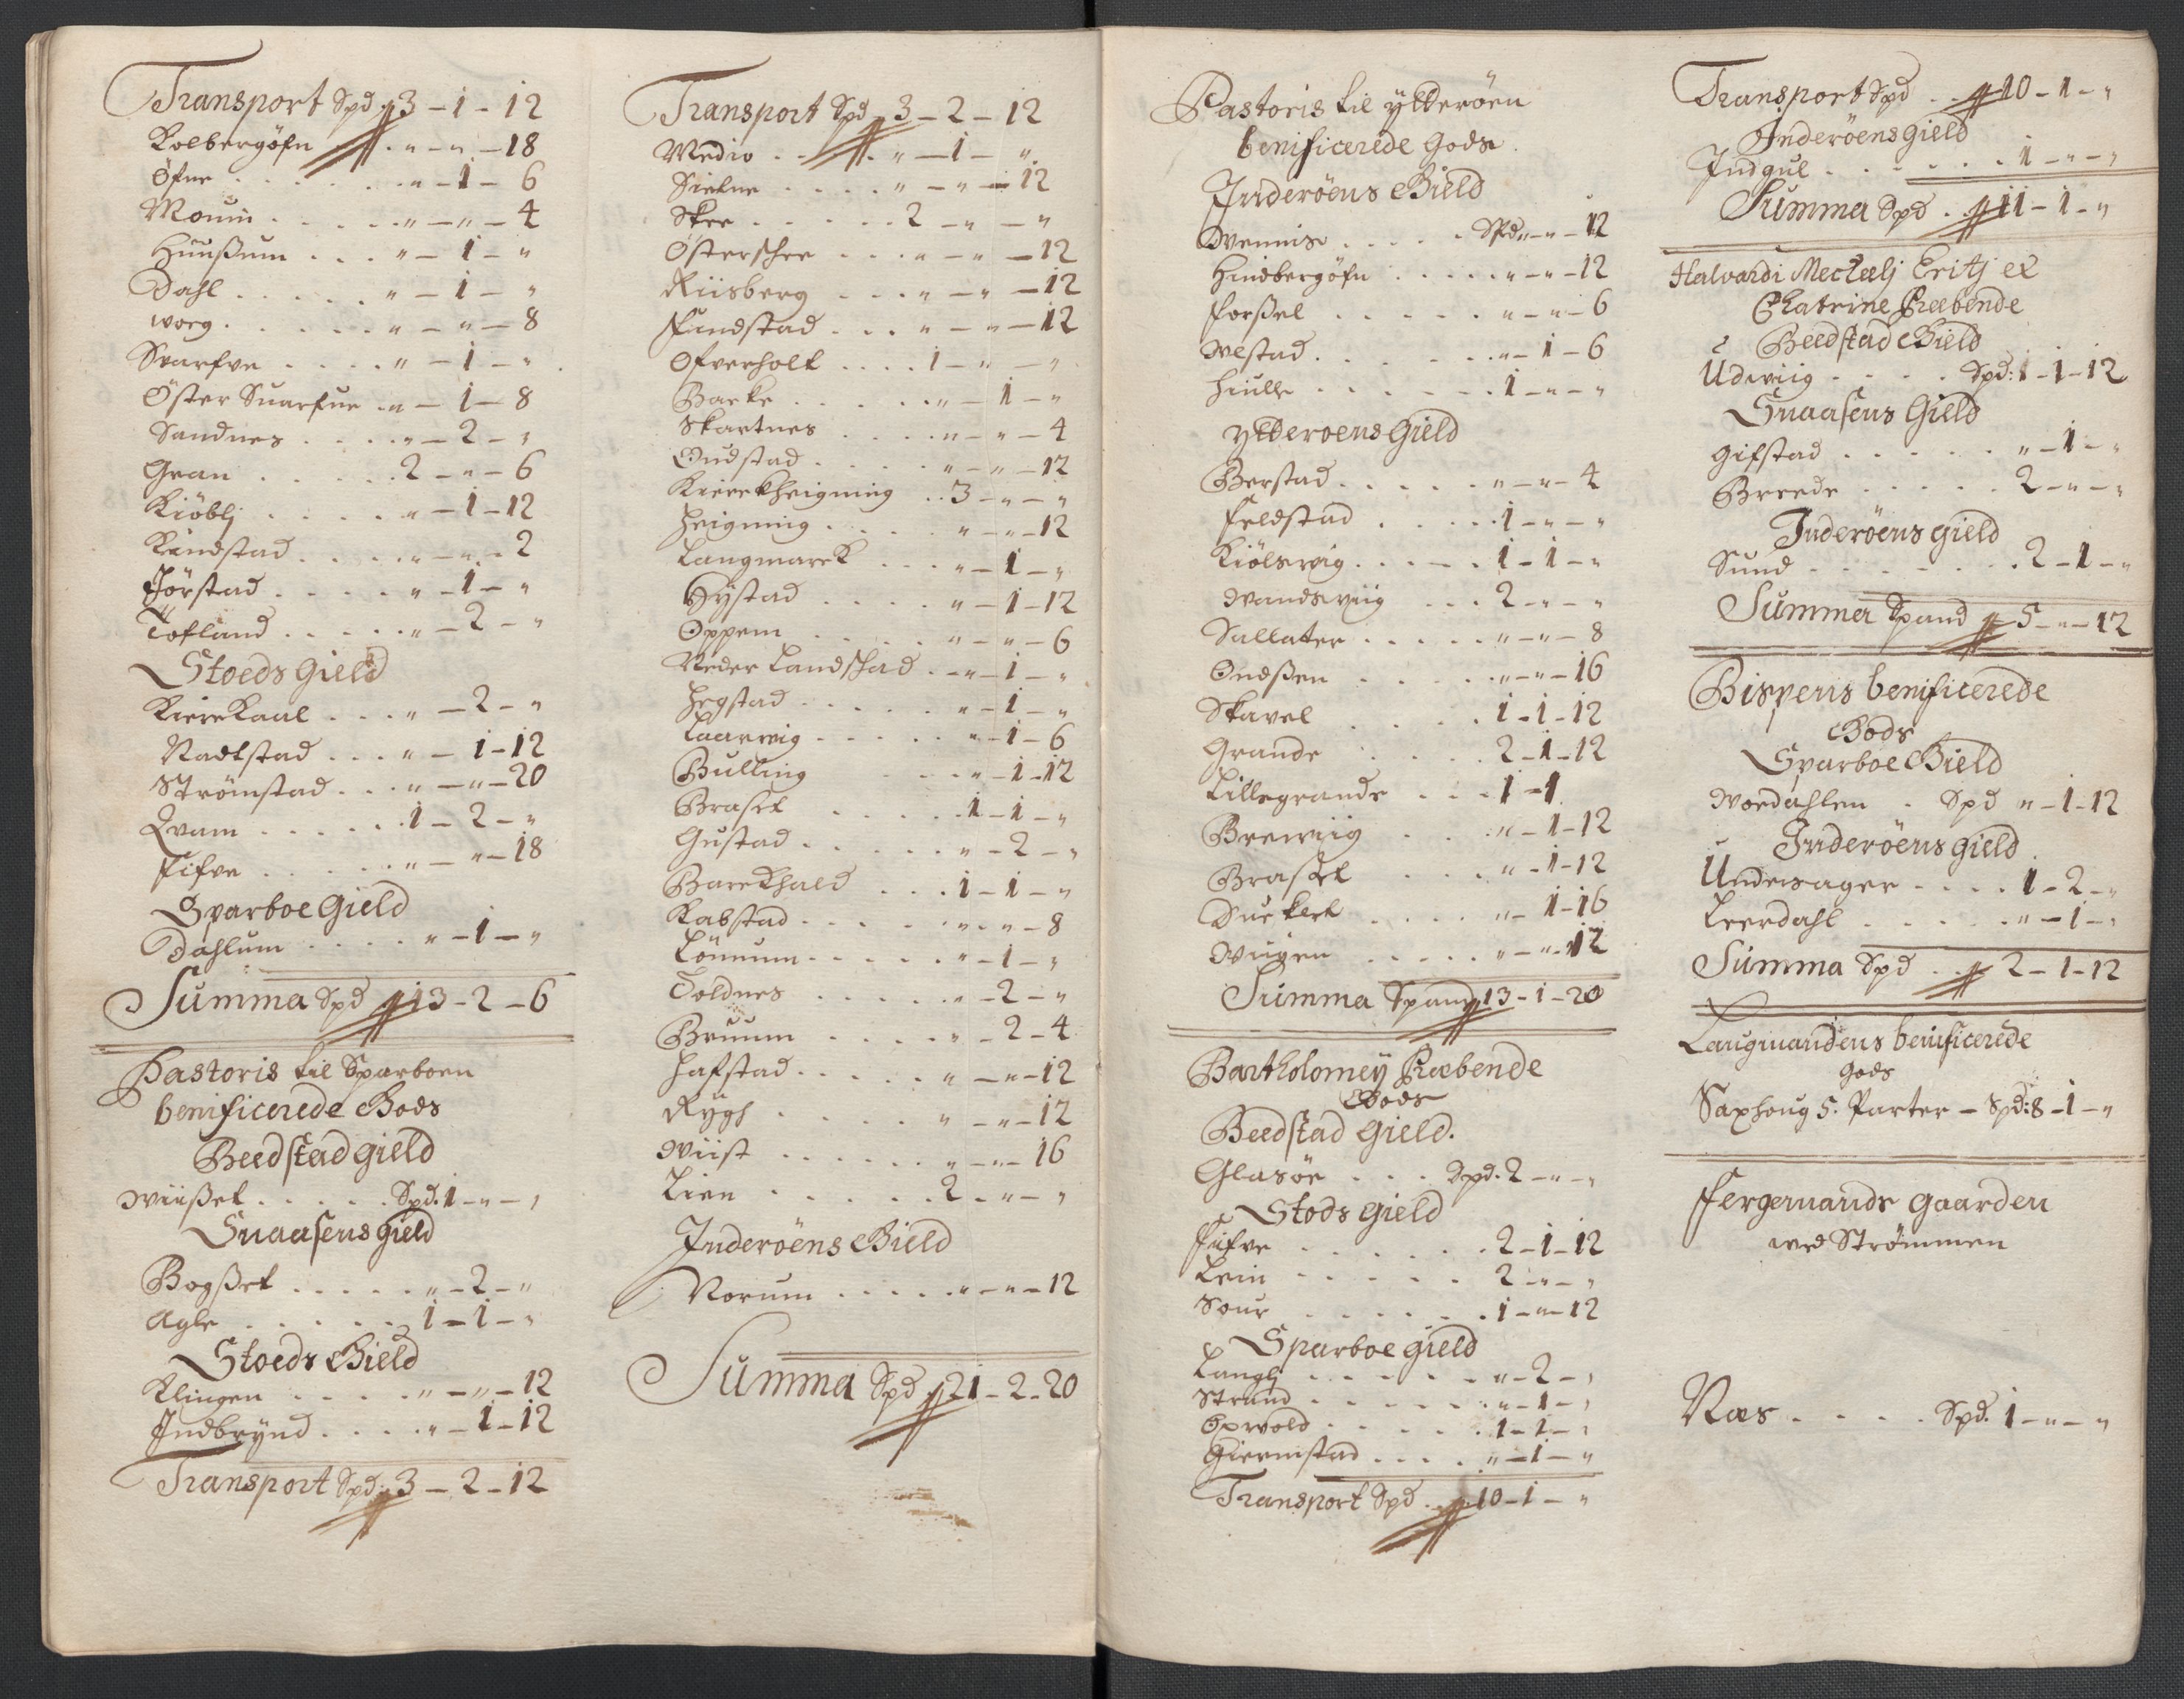 Transport Spd 3 - 1 - 12
Kolbergøfn . „ - „ - 18
Øfne . . . „ - 1 - 6
Mouin . . . „ - „ - 4
Huußum . . . „ - 1 - „
Dahl . . . „ - 1 - „
worg . . . „ - „ - 8
Svarfve . . . „ - 1 - „
Öster Suarfue . „ - 1 - 8
Sandnes . . . „ - 2 - „
Gran . . . 2 - „ - 6
Kiöblj . . . „ - 1 - 12
Kindstad . . . „ - „ - 2
Jörstad . . . „ - 1 - „
Tofland . . . „ - 2 - „
Stoeds Gield
Kirekaal . . . „ - 2 - „
Nadtstad . . . „ - 1 - 12
Strömstad . . . „ - „ - 20
Qvam . . . 1 - 2 - „
Fifve . . . „ - „ - 18
Sparboe Gield
Dahlum . . . „ - 1 - „
Summa Spd 13 - 2 - 6
Pastoris til Sparboen
benificerede Gods
Beedstad gield
Wiißet . . . Spd. 1 - „ - „
Snaasens gield
Bogßet . . . „ - 2 - „
Agle . . . 1 - 1 - „
Stoeds Gield
Klingen . . . „ - „ - 12
Indbrÿnd . . . „ - 1 - 12
Transport Spd. 3 - 2 - 12
Transport Spd 3 - 2 - 12
Medio . . „ - 1 - „
Sielne . . . „ - „ - 12
Skee . . . 2 - „ - „
Österschee . . . „ - „ - 12
Riisberg . . . „ - „ - 12
Fundstad . . . „ - „ - 12
Ofverholt . . . 1 - „ - „
Barke . . . „ - 1 - „
Skartnes . . . „ - „ - 4
Oudstad . . . „ - „ - 12
Kirckheigning . . 3 - „ - „
Heigning . . . „ - „ - 12
Langmarck . . . „ - 1 - „
Hÿstad . . . „ - 1 - 12
Oppem . . . „ - „ - 6
Neder Landstad . „ - 1 - „
Hegstad . . . „ - 1 - „
Laarwig . . . „ - 1 - 6
Bulling . . . „ - 1 - 12
Braset . . . 1 - 1 - „
Gustad . . . „ - 2 - „
Barckhald . . . 1 - 1 - „
Kabstad . . . „ - „ - 8
Lönnum . . . „ - 1 - „
Toldnes . . . „ - 2 - „
Bruum . . . „ - 2 - 4
Hafstad . . . „ - „ - 12
Rÿgh . . . „ - „ - 12
Wiist . . . „ - „ - 16
Lien . . . 2 - „ - „
Inderöens Gield
Norum . . . „ - „ - 12
Summa Spd 21 - 2 - 20
Pastoris til ytterøen
benificerede Gods
Inderöens Gield
Wennis . . . Spd „ - „ - 12
Hindbergøfn . . . „ - „ - 12
Forßel . . . „ - „ - 6
Westad . . . „ - 1 - 6
Hiulle . . . 1 - „ - „
Ytteroens Gield
Berstad . . . „ - „ - 4
Feldstad . . . 1 - „ - „
Kiölswig . . . 1 - 1 - „
Wandswiig . . . 2 - „ - „
Sallater . . . „ - „ - 8
Oudßen . . . „ - „ - 16
Skavel . . . 1 - 1 - 12
Grande . . . 2 - 1 - 12
Lillegrande . . . 1 - 1
Brewiig . . . „ - 1 - 12
Braset . . . „ - 1 - 12
Duklet . . . „ - 1 - 16
Wuigen . . . „ - „ - 12
Summa Spand 13 - 1 - 20
Bartholomeÿ Præbende
Gods
Beedstad Gield.
Glasöe . . . Spd. 2 - „ - „
Stods Gield
Fifve . . . 2 - 1 - 12
Lein . . . 2 - „ - „
Sour . . . 1 - „ - 12
Sparboe gield
Langlj . . . „ - 2 - „
Strand . . . „ - 1 - „
Opwold . . . 1 - 1 - „
Giermstad . . . „ - 1 - „
Transport Spd . 10 - 1 - „
Transport Spd . . 10 - 1 - „
Inderöens gield
Indgul . . . 1 - „ - „
Summa Spd . 11 - 1 - „
Halvardi Mechelj Eritj et
Chatrine Præbende
Beedstad Gield
Udwiig . . . Spd: 1 - 1 - 12
Snaasens Gield
Gifstad . . . „ - 1 - „
Breede . . . 2 - „ - „
Inderöens gield
Sund . . . 2 - 1 - „
Summa Spand 5 - „ - 12
Bispens benificerede
Gods
Sparboe Gield
Wordahlen . Spd „ - 1 - 12
Inderöens gield
Undersager . . . 1 - 2 - „
Leerdahl . . . „ - 1 - „
Summa Spd . . 2 - 1 - 12
Laugmandens benificerede
Gods
Saxhoug 5. Parter - Spd: 8 - 1 - „
Fergemands gaarden
wed Strömmen
Næs . . . Spd. 1 - „ - „